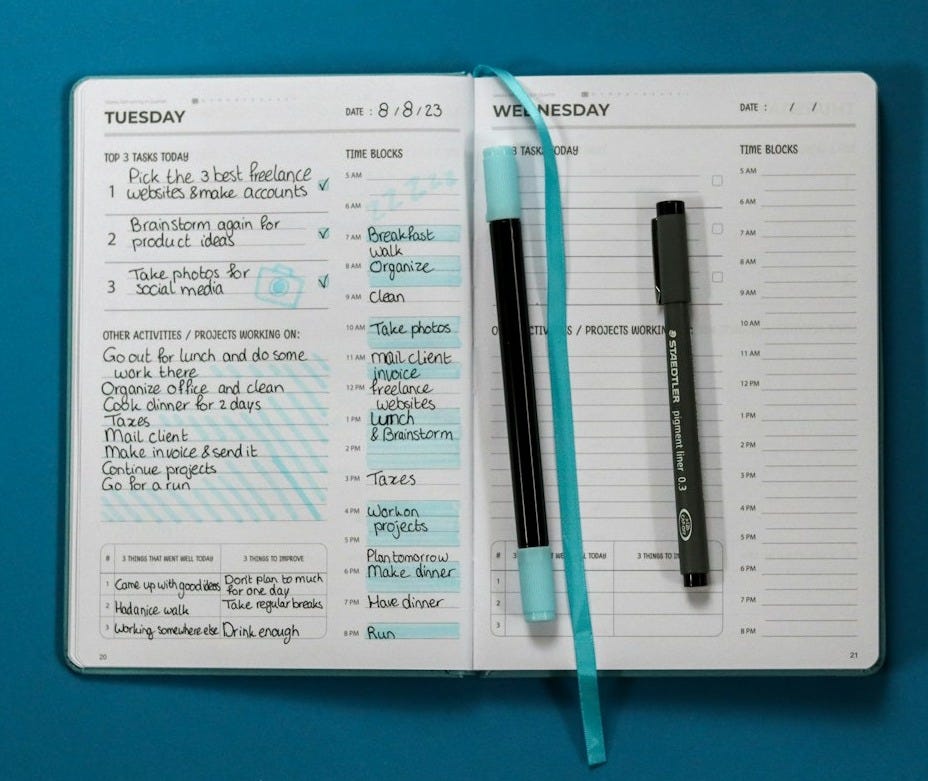 TUESDAY
DATE : 8/8/23
TOP 3 TASKS TODAY
1 Pick the 3 best freelance
websites & make accounts
2 Brainstorm again for
product ideas
3 Take photos for
social media
OTHER ACTIVITIES / PROJECTS WORKING ON:
Go out for lunch and do some
work there
Organize office and clean
Cook dinner for 2 days
Taxes
Mail client
Make invoice & send it
Continue projects
Go for a run
# 3 THINGS THAT WENT WELL TODAY 3 THINGS TO IMPROVE
1 Came up with good ideas Don't plan to much
for one day
2 Had a nice walk Take regular breaks
3 Working somewhere else Drink enough
20
TIME BLOCKS
5 AM
zzzzz
6 AM
7 AM Breakfast
walk
8 AM Organize
9 AM Clean
10 AM Take photos
11 AM Mail client
invoice
12 PM freelance
websites
1 PM Lunch
& Brainstorm
2 PM
3 PM Taxes
4 PM Work on
projects
5 PM
Plan tomorrow
6 PM Make dinner
7 PM Have dinner
8 PM Run
WEDNESDAY
DATE : / /
3 TASKS TODAY
O ACTIVITIES / PROJECTS WORKIN ON:
# 3 WELL TODAY 3 THINGS TO I
1
2
3
TIME BLOCKS
5 AM
6 AM
7 AM
8 AM
9 AM
10 AM
11 AM
12 PM
1 PM
2 PM
3 PM
4 PM
5 PM
6 PM
7 PM
8 PM
21
STAEDTLER pigment liner 0.3